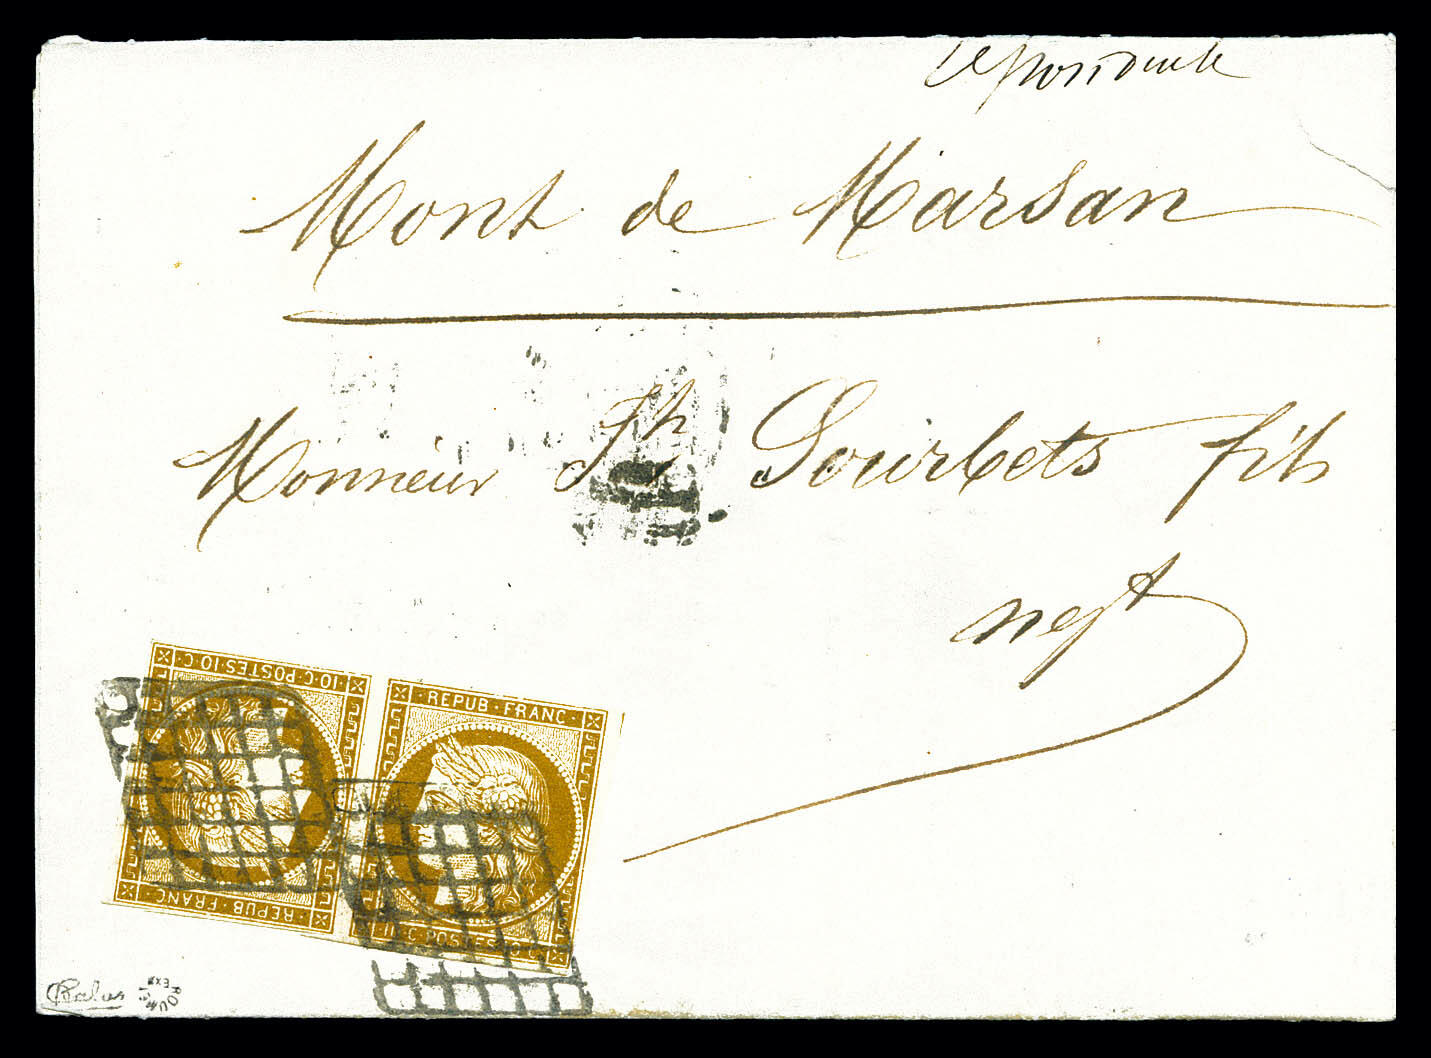 Mont de Marsan
Monsieur Jh Sourbets fils
negt
10·C·POSTES 10·C·
REPUB·FRANC·
REPUB·FRANC·
10·C·POSTES·10·C
Calves
ROUMET
EXP